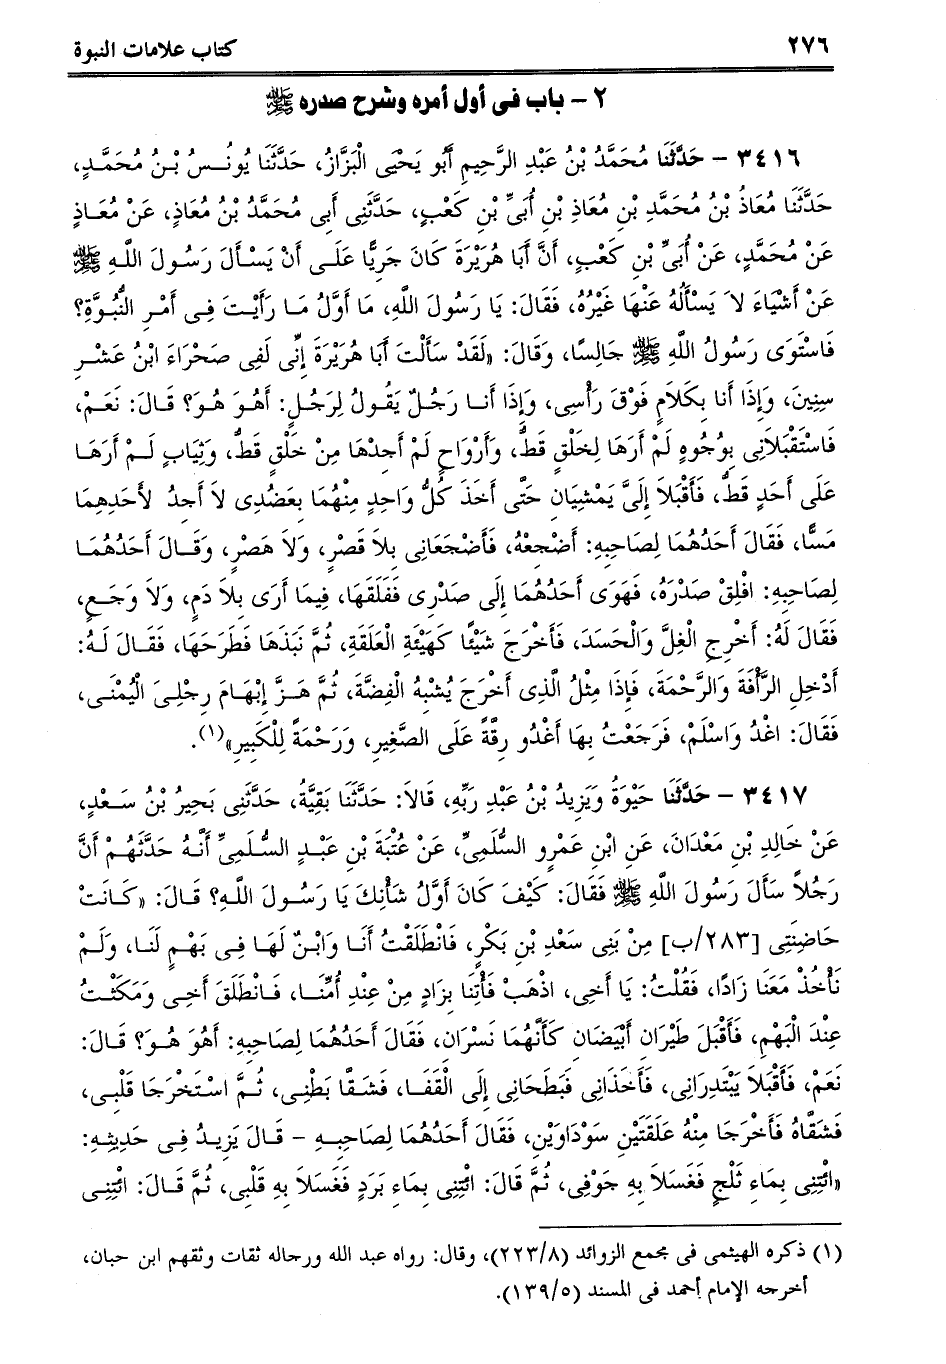 ٢٧٦ كتاب علامات النبوة
٢ - باب فى أول أمره وشرح صدره ﷺ
٣٤١٦ - حَدَّثَنَا مُحَمَّدُ بْنُ عَبْدِ الرَّحِيمِ أَبُو يَحْيَى الْبَزَّازُ، حَدَّثَنَا يُونُسُ بْنُ مُحَمَّدٍ،
حَدَّثَنَا مُعَاذُ بْنُ مُحَمَّدِ بْنِ مُعَاذِ بْنِ أُبَىِّ بْنِ كَعْبٍ، حَدَّثَنِى أَبِى مُحَمَّدُ بْنُ مُعَاذٍ، عَنْ مُعَاذٍ
عَنْ مُحَمَّدٍ، عَنْ أُبَىِّ بْنِ كَعْبٍ، أَنَّ أَبَا هُرَيْرَةَ كَانَ جَرِيًّا عَلَى أَنْ يَسْأَلَ رَسُولَ اللَّهِ ﷺ
عَنْ أَشْيَاءَ لاَ يَسْأَلُهُ عَنْهَا غَيْرُهُ، فَقَالَ: يَا رَسُولَ اللَّهِ، مَا أَوَّلُ مَا رَأَيْتَ فِى أَمْرِ النُّبُوَّةِ؟
فَاسْتَوَى رَسُولُ اللَّهِ ﷺ جَالِسًا، وَقَالَ: «لَقَدْ سَأَلْتَ أَبَا هُرَيْرَةَ إِنِّى لَفِى صَحْرَاءَ ابْنُ عَشْرِ
سِنِينَ، وَإِذَا أَنا بِكَلاَمٍ فَوْقَ رَأْسِى، وَإِذَا أَنا رَجُلٌ يَقُولُ لِرَجُلٍ: أَهُوَ هُوَ؟ قَالَ: نَعَمْ،
فَاسْتَقْبَلاَنِى بِوُجُوهٍ لَمْ أَرَهَا لِخَلْقٍ قَطُّ، وَأَرْوَاحٍ لَمْ أَجِدْهَا مِنْ خَلْقٍ قَطُّ، وَثِيَابٍ لَمْ أَرَهَا
عَلَى أَحَدٍ قَطُّ، فَأَقْبَلاَ إِلَىَّ يَمْشِيَانِ حَتَّى أَخَذَ كُلُّ وَاحِدٍ مِنْهُمَا بِعَضُدِى لاَ أَجِدُ لأَحَدِهِمَا
مَسًّا، فَقَالَ أَحَدُهُمَا لِصَاحِبِهِ: أَضْجِعْهُ، فَأَضْجَعَانِى بِلاَ قَصْرٍ، وَلاَ هَصْرٍ، وَقَالَ أَحَدُهُمَا
لِصَاحِبِهِ: افْلِقْ صَدْرَهُ، فَهَوَى أَحَدُهُمَا إِلَى صَدْرِى فَفَلَقَهَا، فِيمَا أَرَى بِلاَ دَمٍ، وَلاَ وَجَعٍ،
فَقَالَ لَهُ: أَخْرِجِ الْغِلَّ وَالْحَسَدَ، فَأَخْرَجَ شَيْئًا كَهَيْئَةِ الْعَلَقَةِ، ثُمَّ نَبَذَهَا فَطَرَحَهَا، فَقَالَ لَهُ:
أَدْخِلِ الرَّأْفَةَ وَالرَّحْمَةَ، فَإِذَا مِثْلُ الَّذِى أَخْرَجَ يُشْبِهُ الْفِضَّةَ، ثُمَّ هَزَّ إِبْهَامَ رِجْلِىَ الْيُمْنَى،
فَقَالَ: اغْدُ وَاسْلَمْ، فَرَجَعْتُ بِهَا أَغْدُو رِقَّةً عَلَى الصَّغِيرِ، وَرَحْمَةً لِلْكَبِيرِ»(١).
٣٤١٧ - حَدَّثَنَا حَيْوَةُ وَيَزِيدُ بْنُ عَبْدِ رَبِّهِ، قَالاَ: حَدَّثَنَا بَقِيَّةُ، حَدَّثَنِى بَحِيرُ بْنُ سَعْدٍ،
عَنْ خَالِدِ بْنِ مَعْدَانَ، عَنِ ابْنِ عَمْرٍو السُّلَمِىِّ، عَنْ عُتْبَةَ بْنِ عَبْدٍ السُّلَمِىِّ أَنَّهُ حَدَّثَهُمْ أَنَّ
رَجُلاً سَأَلَ رَسُولَ اللَّهِ ﷺ فَقَالَ: كَيْفَ كَانَ أَوَّلُ شَأْنِكَ يَا رَسُولَ اللَّهِ؟ قَالَ: «كَانَتْ
حَاضِنَتِى [٢٨٣/ب] مِنْ بَنِى سَعْدِ بْنِ بَكْرٍ، فَانْطَلَقْتُ أَنَا وَابْنٌ لَهَا فِى بَهْمٍ لَنَا، وَلَمْ
نَأْخُذْ مَعَنَا زَادًا، فَقُلْتُ: يَا أَخِى، اذْهَبْ فَأْتِنَا بِزَادٍ مِنْ عِنْدِ أُمِّنَا، فَانْطَلَقَ أَخِى وَمَكَثْتُ
عِنْدَ الْبَهْمِ، فَأَقْبَلَ طَيْرَانِ أَبْيَضَانِ كَأَنَّهُمَا نَسْرَانِ، فَقَالَ أَحَدُهُمَا لِصَاحِبِهِ: أَهُوَ هُوَ؟ قَالَ:
نَعَمْ، فَأَقْبَلاَ يَبْتَدِرَانِى، فَأَخَذَانِى فَبَطَحَانِى إِلَى الْقَفَا، فَشَقَّا بَطْنِى، ثُمَّ اسْتَخْرَجَا قَلْبِى،
فَشَقَّاهُ فَأَخْرَجَا مِنْهُ عَلَقَتَيْنِ سَوْدَاوَيْنِ، فَقَالَ أَحَدُهُمَا لِصَاحِبِهِ - قَالَ يَزِيدُ فِى حَدِيثِهِ:
«ائْتِنِى بِمَاءِ ثَلْجٍ فَغَسَلاَ بِهِ جَوْفِى، ثُمَّ قَالَ: ائْتِنِى بِمَاءِ بَرَدٍ فَغَسَلاَ بِهِ قَلْبِى، ثُمَّ قَالَ: ائْتِنِى
(١) ذكره الهيثمى فى مجمع الزوائد (٢٢٣/٨)، وقال: رواه عبد الله ورجاله ثقات وثقهم ابن حبان،
أخرجه الإمام أحمد فى المسند (١٣٩/٥).